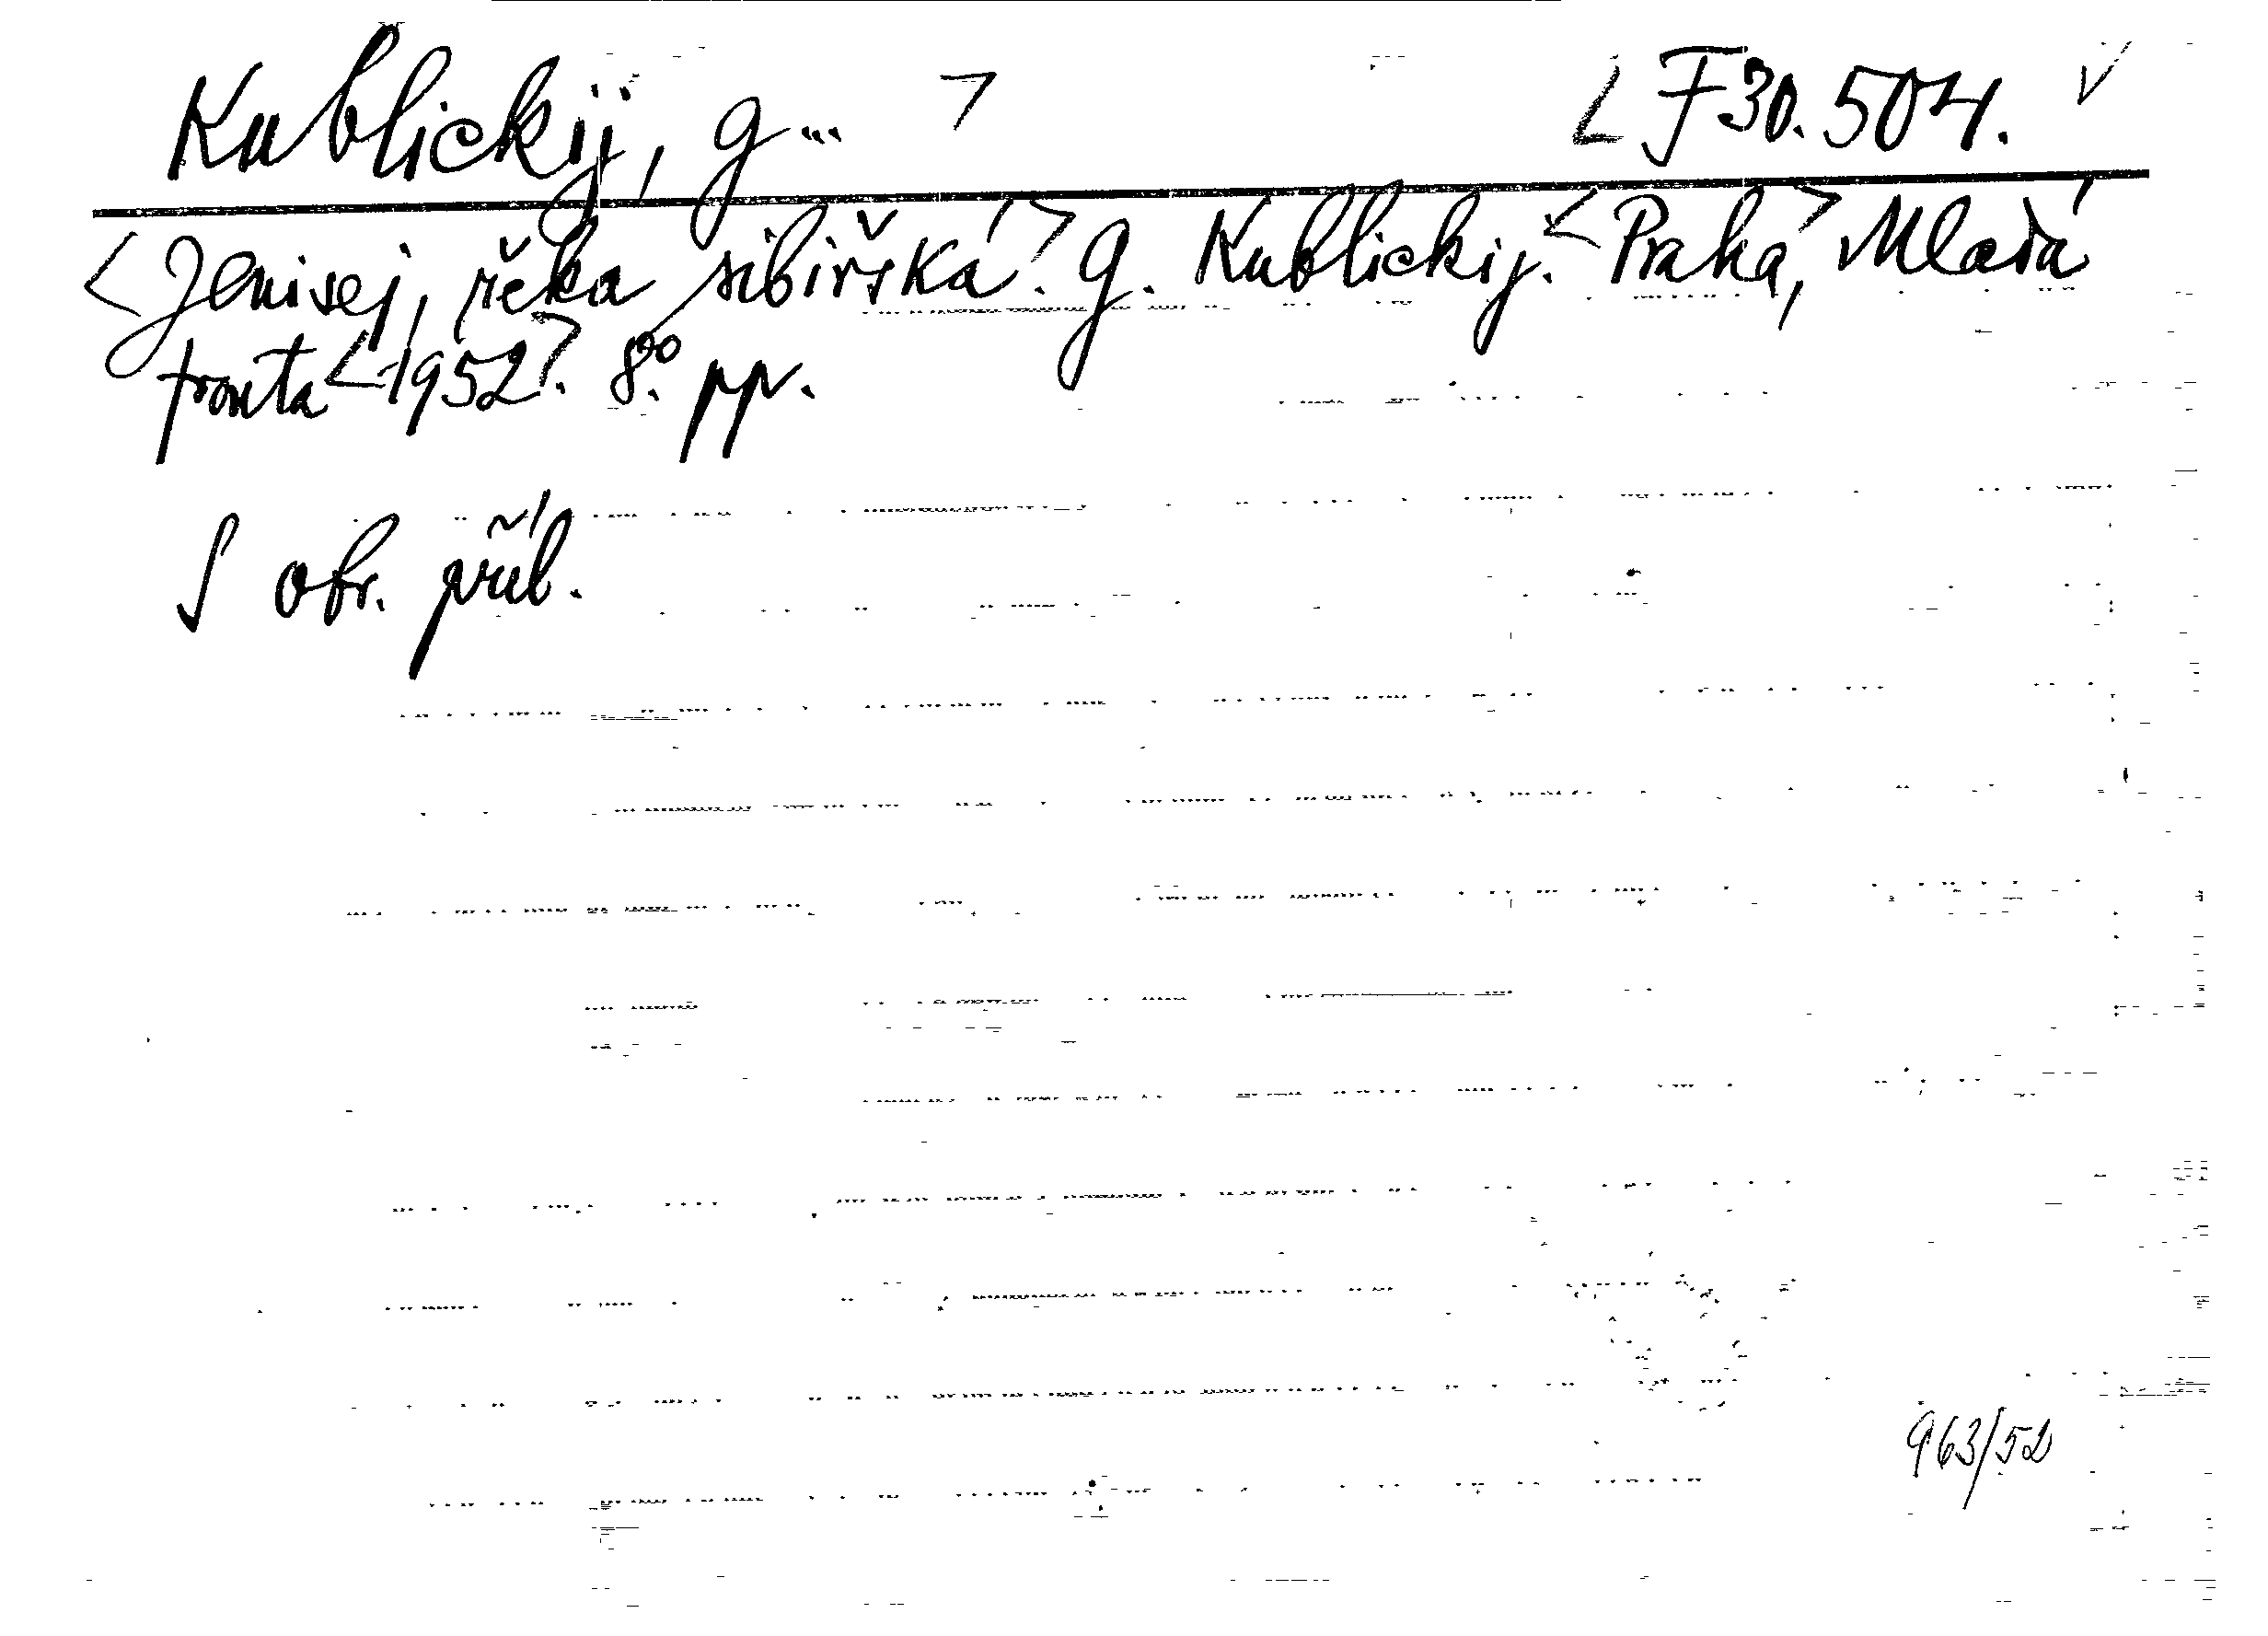 Kublickij, G... > < F 30.504. √
<Jenisej, řeka sibiřská.> G. Kublickij. <Praha,> Mladá
fronta <1952>. 8.° pp.
S obr. příl.
963/52